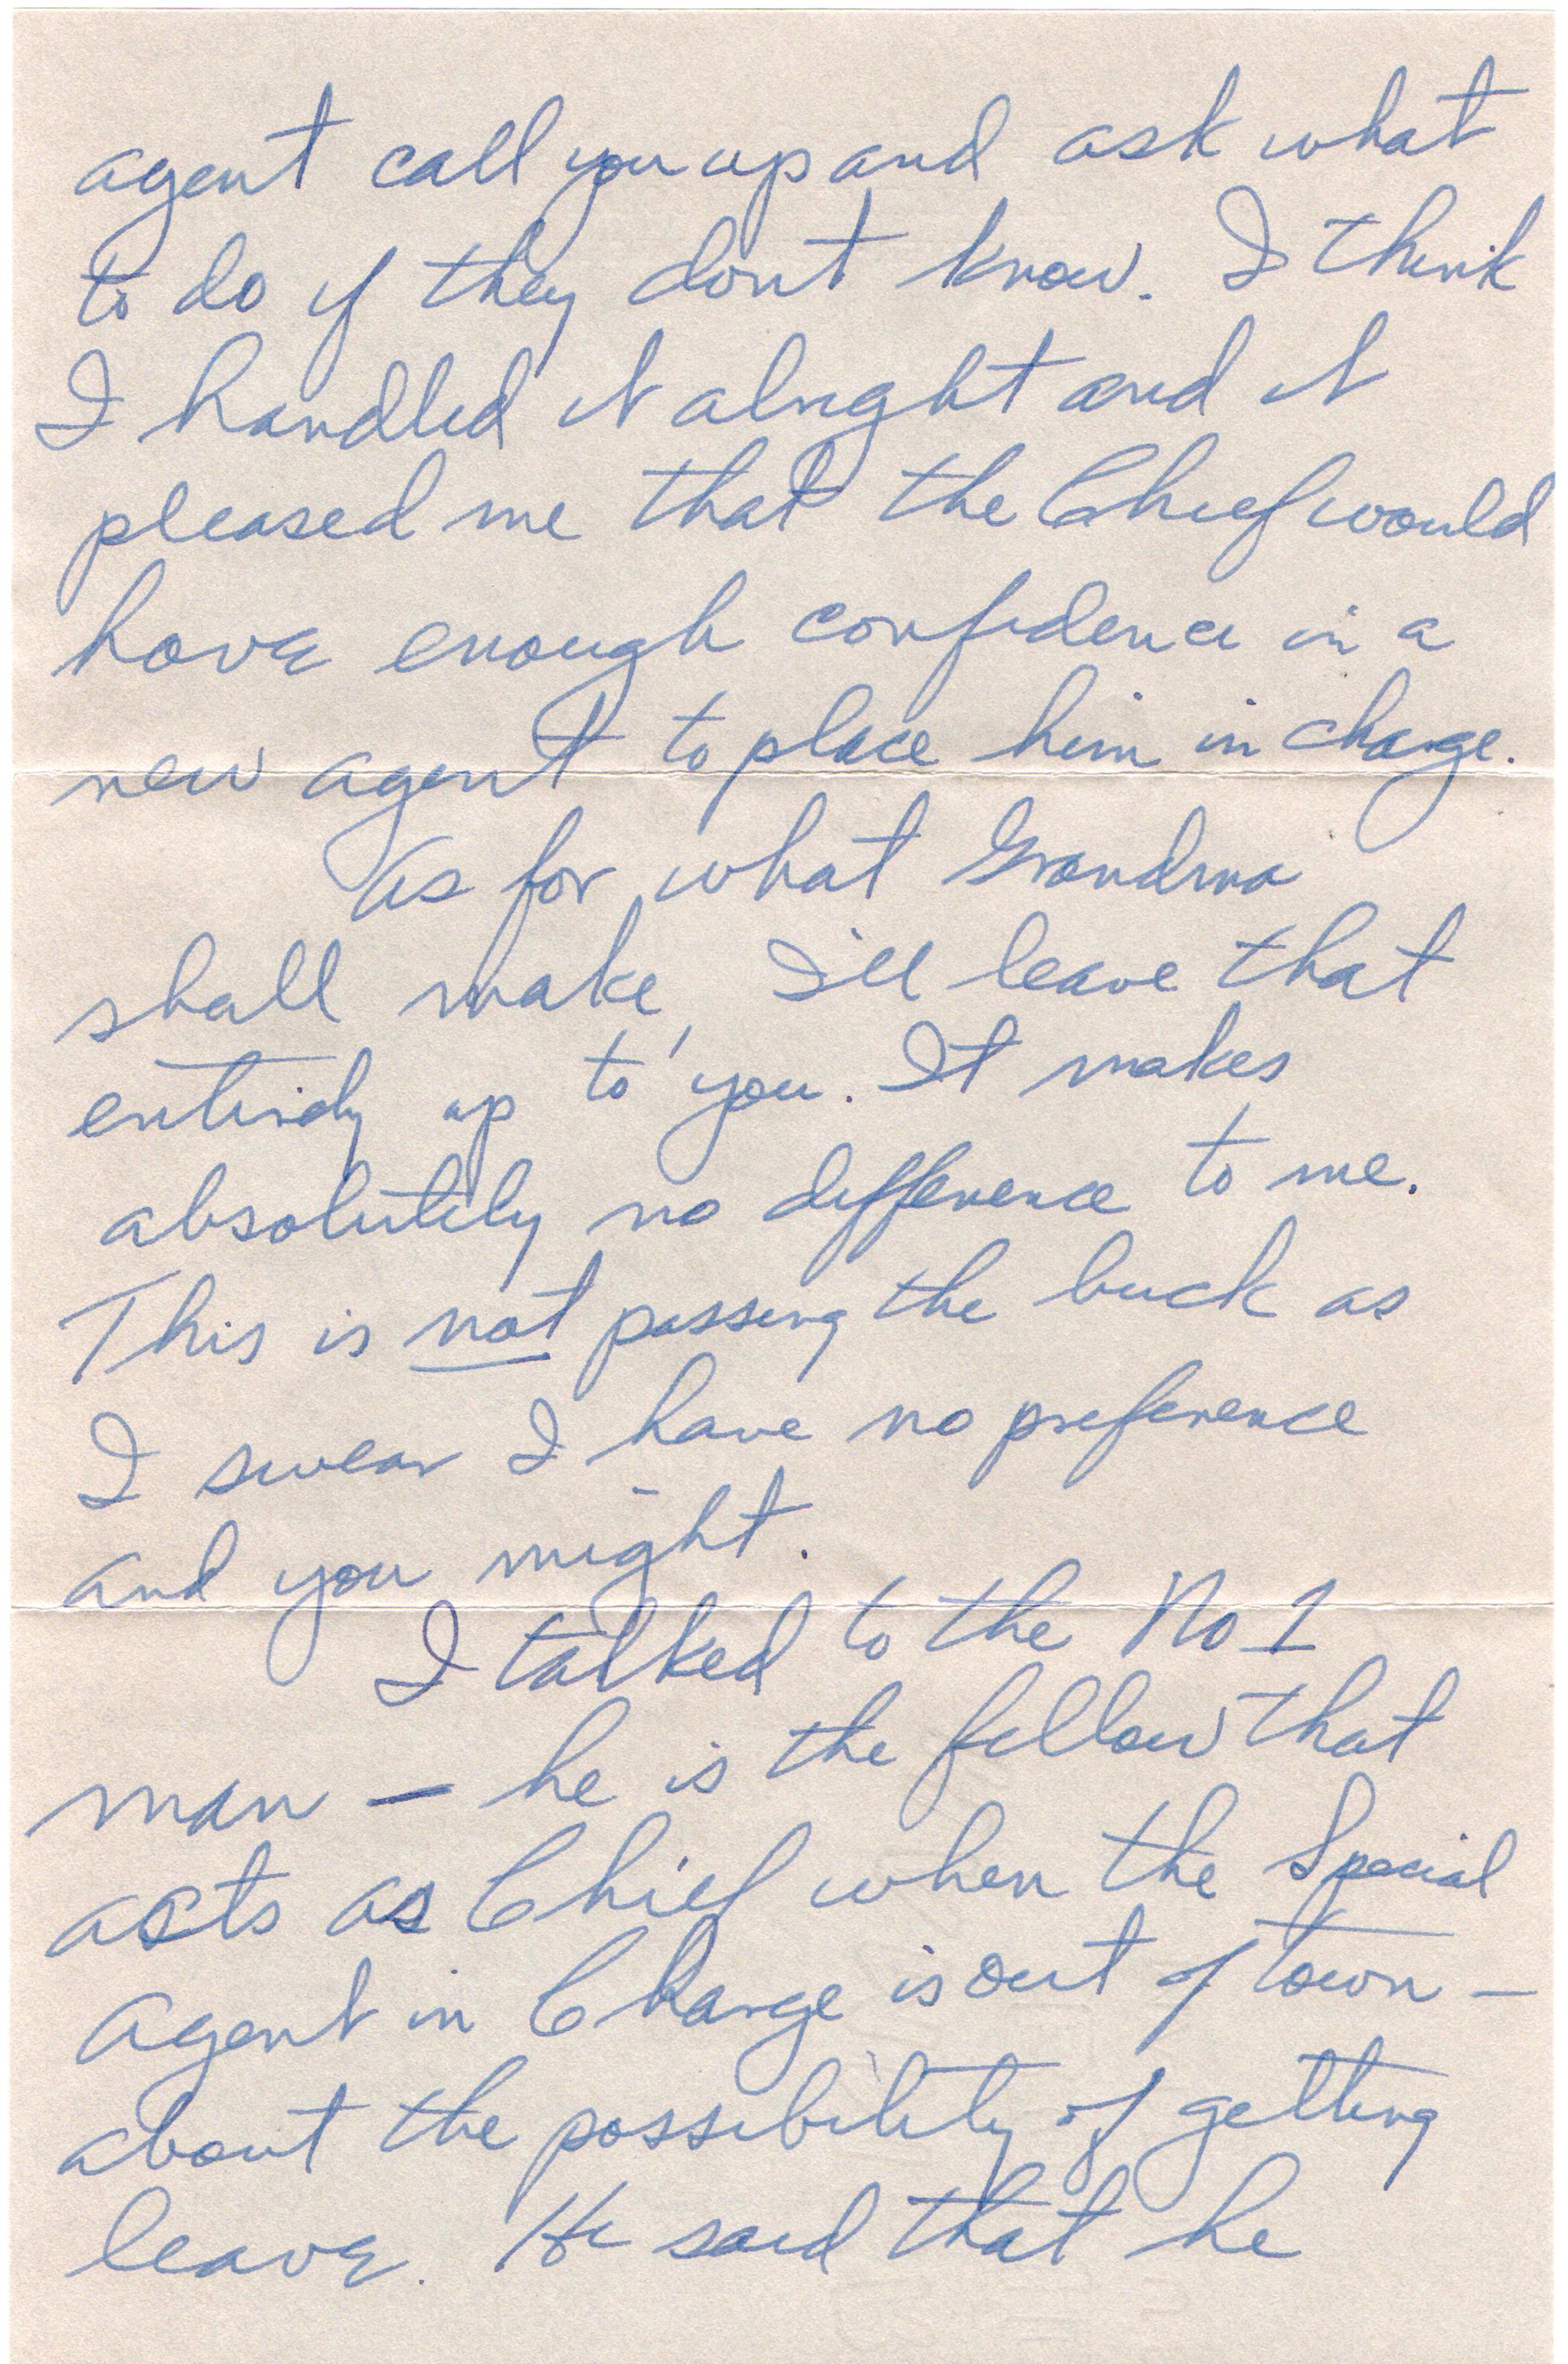 agent call you up and ask what
to do if they don't know. I think
I handled it alright and it
pleased me that the Chief would
have enough confidence in a
new agent to place him in charge.
As for what Grandma
shall make, I'll leave that
entirely up to you. It makes
absolutely no difference to me.
This is not passing the buck as
I swear I have no preference
and you might.
I talked to the No 1
man — he is the fellow that
acts as Chief when the Special
Agent in Charge is out of town —
about the possibility of getting
leave. He said that he